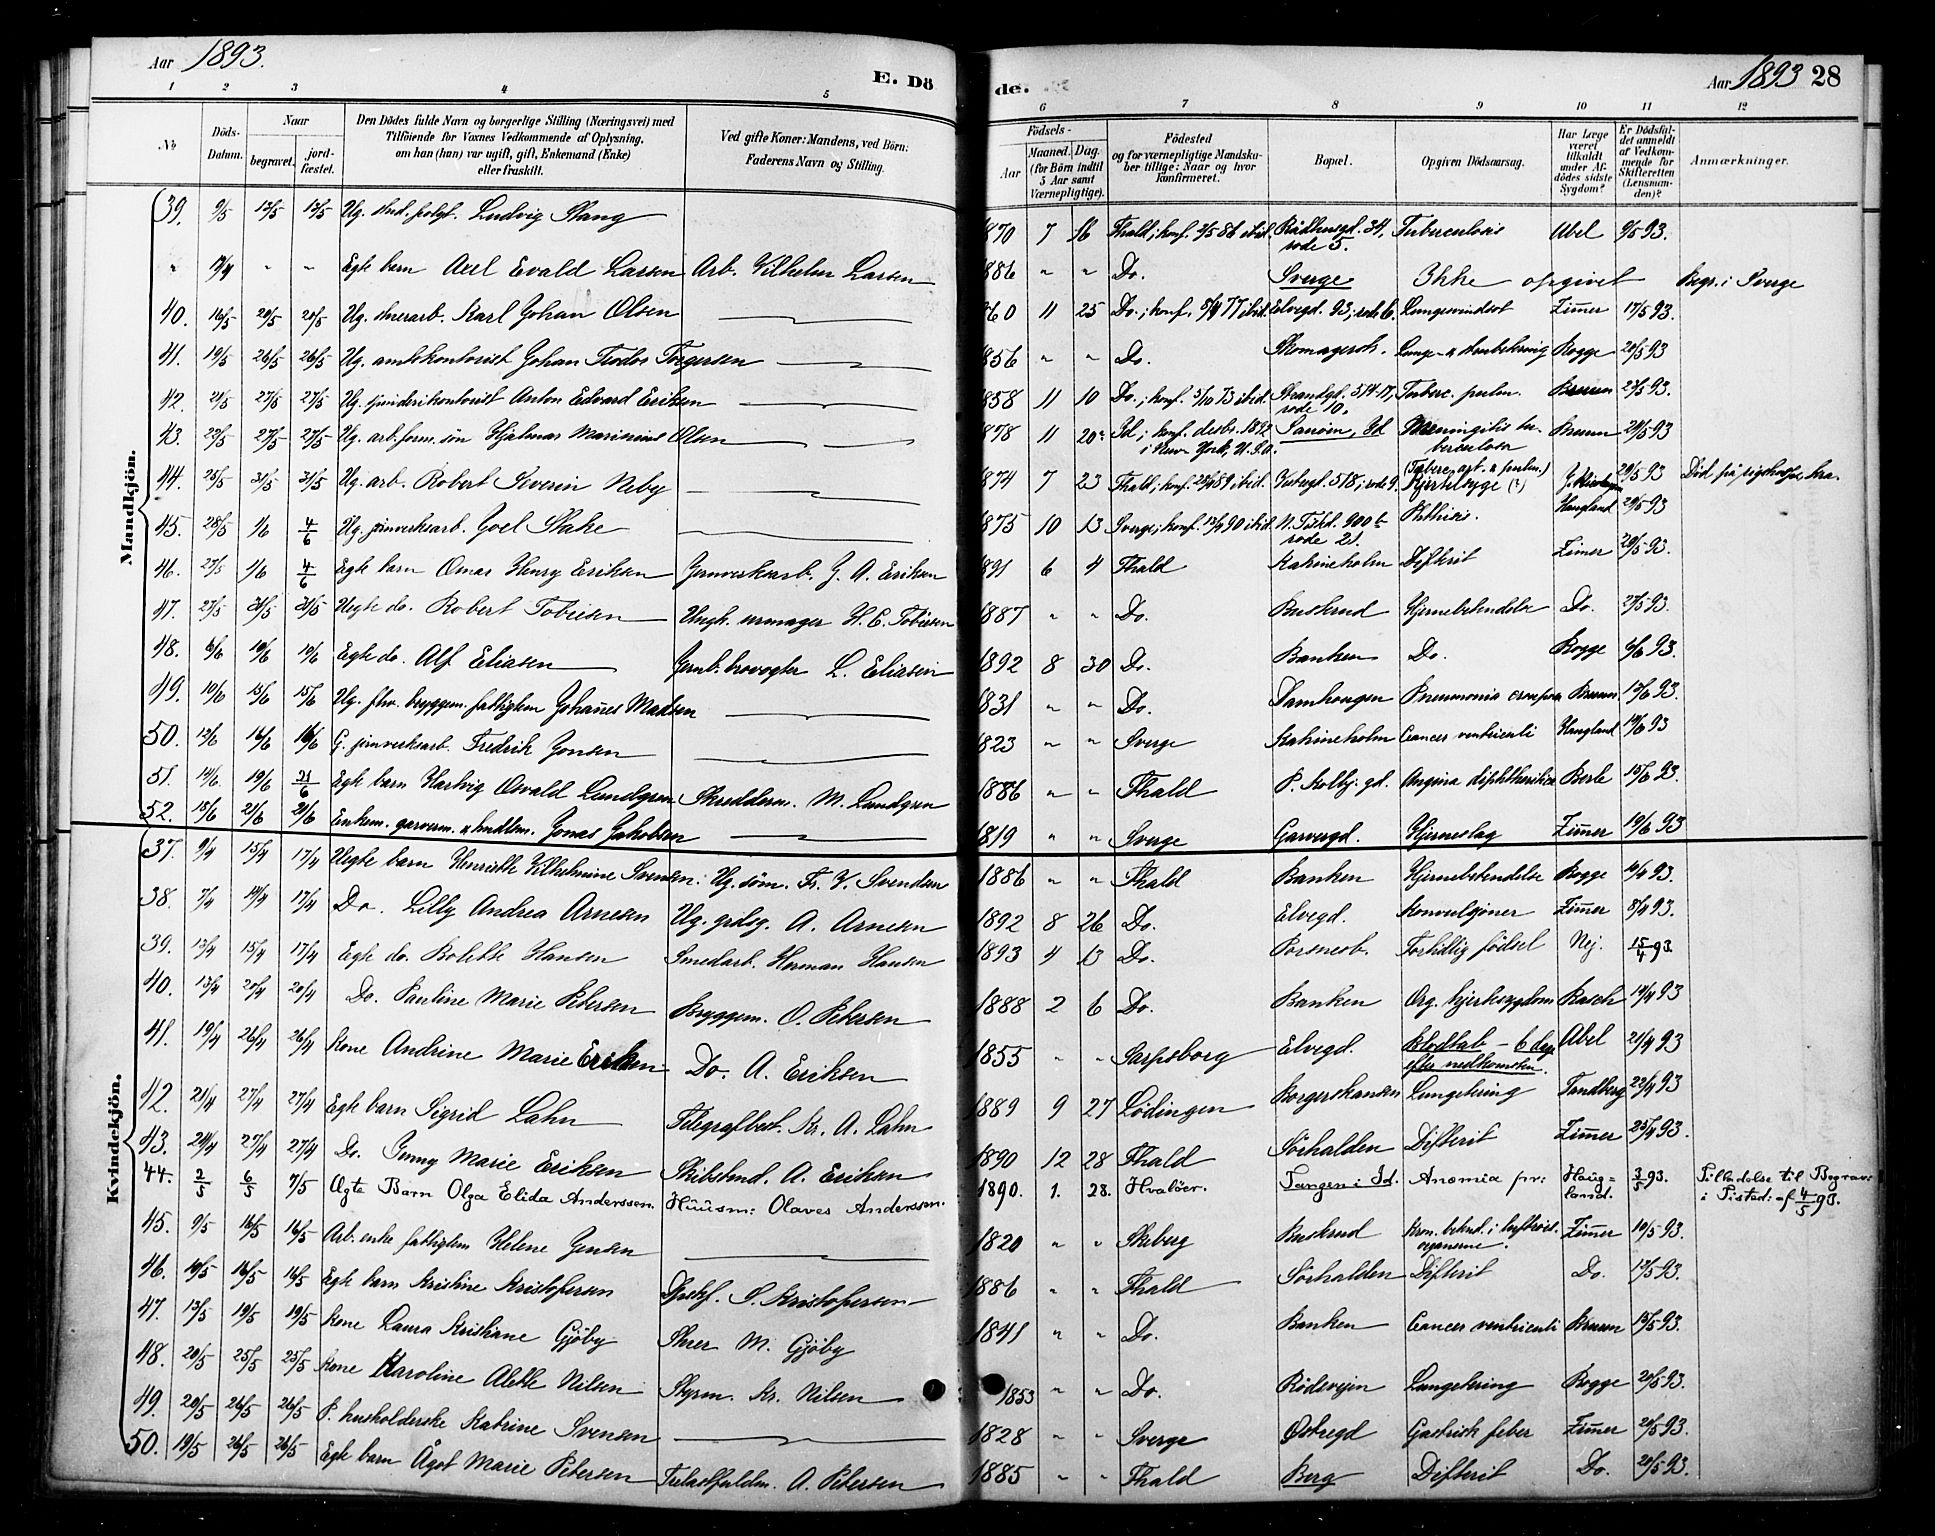 Aar 1893.
E. Dö
de.
Aar 1893 28
1 2 3 4 5 6 7 8 9 10 11 12
No
Döds-Datum.
Naar
begravet.
jord-fæstet.
Den Dödes fulde Navn og borgerlige Stilling (Næringsvei) med
Tilföiende for Voxnes Vedkommende af Oplysning,
om han (hun) var ugift, gift, Enkemand (Enke)
eller fraskilt.
Ved gifte Koner: Mandens, ved Börn:
Faderens Navn og Stilling.
Födsels-
Aar
Maaned. Dag.
(for Börn indtil
5 Aar samt
Værnepligtige).
Födested
og for værnepligtige Mandska-
ber tillige: Naar og hvor
konfirmeret.
Bopæl.
Opgiven Dödsaarsag.
Har Læge
været
tilkaldt
under Af-
dödes sidste
Sygdom?
Er Dödsfal-
det anmeldt
af Vedkom-
mende for
Skifteretten
(Lensman-
den)?
Anmærkninger.
Mandkjön.
39. 9/5 13/5 13/5 Ug. stud. polyt. Ludvig Stang 1870 7 16 Fhald; konf. 86 ibid. Rådhusgd. 34, rode 5. Tuberculosis Abel 9/5 93.
" " " Egte barn Axel Evald Larsen Arb. Vilhelm Larsen 1886 " " Do. Sverge Ikke opgivet Begr. i Sverge
40. 16/5 20/5 20/5 Ug. Karl Johan Olsen 1860 11 25 Do.; konf. 77 ibid. Elvegd. 93; rode 6. Lungesvindsot Zimer 17/5 93.
41. 19/5 26/5 26/5 Ug. amtskontorist Johan Teodor Torgersen 1856 " " Do. Bogge 20/5 93
42. 21/5 27/5 27/5 Ug. Anton Edvard Eriksen 1858 11 10 Do.; konf. 5/10 73 ibid. Strandgd. rode 10. Tuberc. pulm. 23/5 93.
43. 23/5 27/5 27/5 Ug. arb. form. sön Hjalmar Marinius Olsen 1878 11 20 Id; konf. desbr. 1892 i New York, U.S.A. Id Meningitis tuberculosa 24/5 93
44. 25/5 31/5 31/5 Ug. arb. Robert Severin Neby 1874 7 23 Fhald; konf. 89 ibid. Vestregt. 518; rode 9. (Tuberc. art. & pulm.) Hjertesyge (?) 29/5 93 Död på
45. 28/5 1/6 4/6 Ug. jernverksarb. Joel Stake 1875 10 13 Sverge; konf. 90 ibid. N. Tistd. 900 b rode 21. Phthisis. Haugland 29/5 93
46. 27/5 1/6 4/6 Egte barn Omar Henry Eriksen Jernverksarb. J. A. Eriksen 1891 6 4 Fhald Katrineholm Difterit Zimer 29/5 93.
47. 27/5 31/5 31/5 Uegte do. Robert Tobiesen Ungk. urmager H. C. Tobiesen 1887 " " Do. Buskrud Hjernebetendelse Do. 27/5 93.
48. 6/6 10/6 10/6 Egte do. Alf Eliasen Jernb. L. Eliasen 1892 8 30 Do. Banken Do. Bogge 6/6 93.
49. 10/6 15/6 15/6 Ug. fhv. bryggem. fattiglem Johanes Madsen 1831 " " Do. Damhaugen Pneumonia crouposa 12/6 93.
50. 12/6 16/6 16/6 G. jernverksarb. Fredrik Jonsen 1823 " " Sverge Katrineholm Cancer ventriculi Haugland 14/6 93
51. 14/6 19/6 21/6 Egte barn Hartvig Osvald Lundgren Skredderm. M. Lundgren 1886 " " Fhald P. Kolbj. gd. Angina diphtheritica Berle 15/6 93.
52. 18/6 21/6 21/6 Enkem. garverm. & hndlm. Jonas Jakobsen 1819 " " Sverge Garvergd. Hjerneslag Zimer 19/6 93
Kvindekjön.
37. 9/4 15/4 17/4 Uegte barn Henriette Vilhelmine Svensen Ug. söm. Fr. V. Svendsen 1886 " " Fhald Banken Hjernebetendelse Bogge 10/4 93.
38. 7/4 14/4 17/4 Do. Lilly Andrea Arnesen Ug. A. Arnesen 1892 8 26 Do. Elvegd. Konvulsjoner Zimer 8/4 93.
39. 13/4 15/4 17/4 Egte do. Bolette Hansen Smedarb. Herman Hansen 1893 4 13 Do. Fortidlig födsel Nej. 15/4 93.
40. 13/4 20/4 20/4 Do. Pauline Marie Petersen Bryggem. O. Petersen 1888 2 6 Do. Banken Org. hjertesygdom 14/4 93
41. 19/4 26/4 26/4 Kone Andrine Marie Eriksen Do. A. Eriksen 1855 " " Sarpsborg Elvegd. Blodtab – 6 dage efter nedkomsten. Abel 21/4 93
42. 21/4 27/4 27/4 Egte barn Sigrid Lahn Telegrafbest. Kr. A. Lahn 1889 9 27 Lödingen Borgerskansen Tandberg 22/4 93
43. 24/4 27/4 27/4 Do. Jenny Marie Eriksen Skibstmd. A. Eriksen 1890 12 28 Fhald Sörhalden Difterit Zimer 25/4 93.
44. 2/5 6/5 7/5 Ægte Barn Olga Elida Anderssen. Huusm: Olaves Anderssen. 1890. 1. 28. Hvaløer. Tangen i Id. Anæmia pr: Haugland. 3/5 93. Tilladelse til Begrav: i Tistedal 4/5 93.
45. 9/5 16/5 16/5 Arb. enke fattiglem Helene Jensen 1820 " " Skeberg Buskrud Kron. betnd. i luftveisorganerne. Zimer 10/5 93.
46. 10/5 16/5 16/5 Egte barn Kristine Kristofersen S. Kristofersen 1886 " " Fhald Sörhalden Difterit Do. 12/5 93.
47. 13/5 19/5 19/5 Kone Laura Kristiane Gjöby M. Gjöby 1841 " " Do. Banken Cancer ventriculi 15/5 93.
48. 20/5 25/5 25/5 Kone Karoline Alette Nilsen Styrm. Kr. Nilsen 1853 " " Do. Rödsvejen Bogge 20/5 93.
49. 20/5 26/5 26/5 P. husholderske Katrine Svensen 1828 " " Sverge Østregd Gastrisk feber Zimer 20/5 93.
50. 19/5 26/5 26/5 Egte barn Ågot Marie Petersen A. Petersen 1885 " " Fhald Berg Difterit Do. 20/5 93.